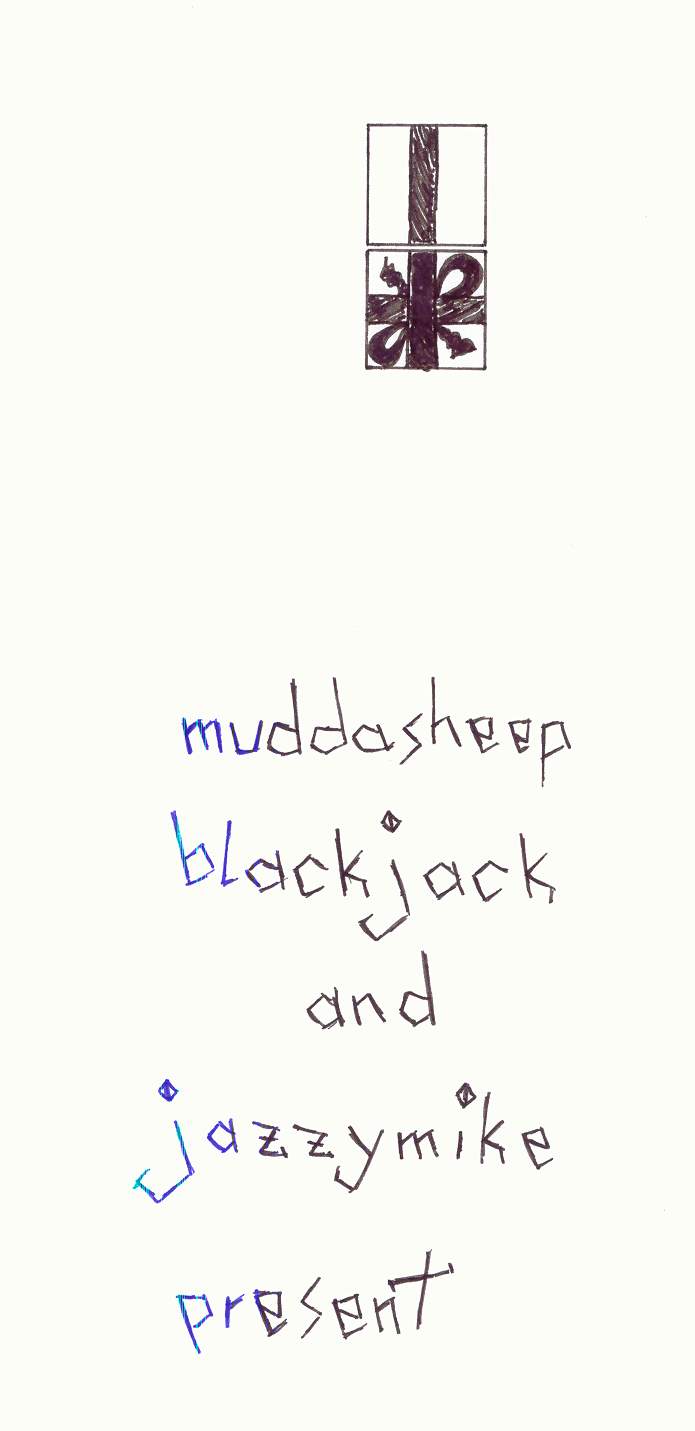 muddasheep
blackjack
and
jazzymike
present